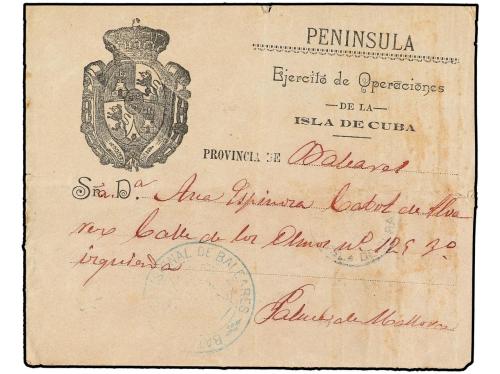 PENINSULA
Ejercito de Operaciones
DE LA
ISLA DE CUBA
PROVINCIA DE Baleares
Sra. Da. Ana Espinosa Cabot de Alva
rez Calle de los Olmos nº 125 3º
izquierda
Palma de Mallorca
ONAL DE BALEARES
BA
ISLA DE